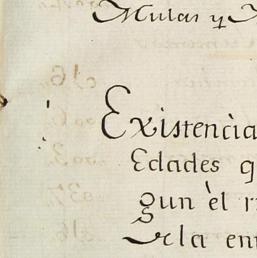 Mulas y
Existencia
Edades q
gun èl r
rla en